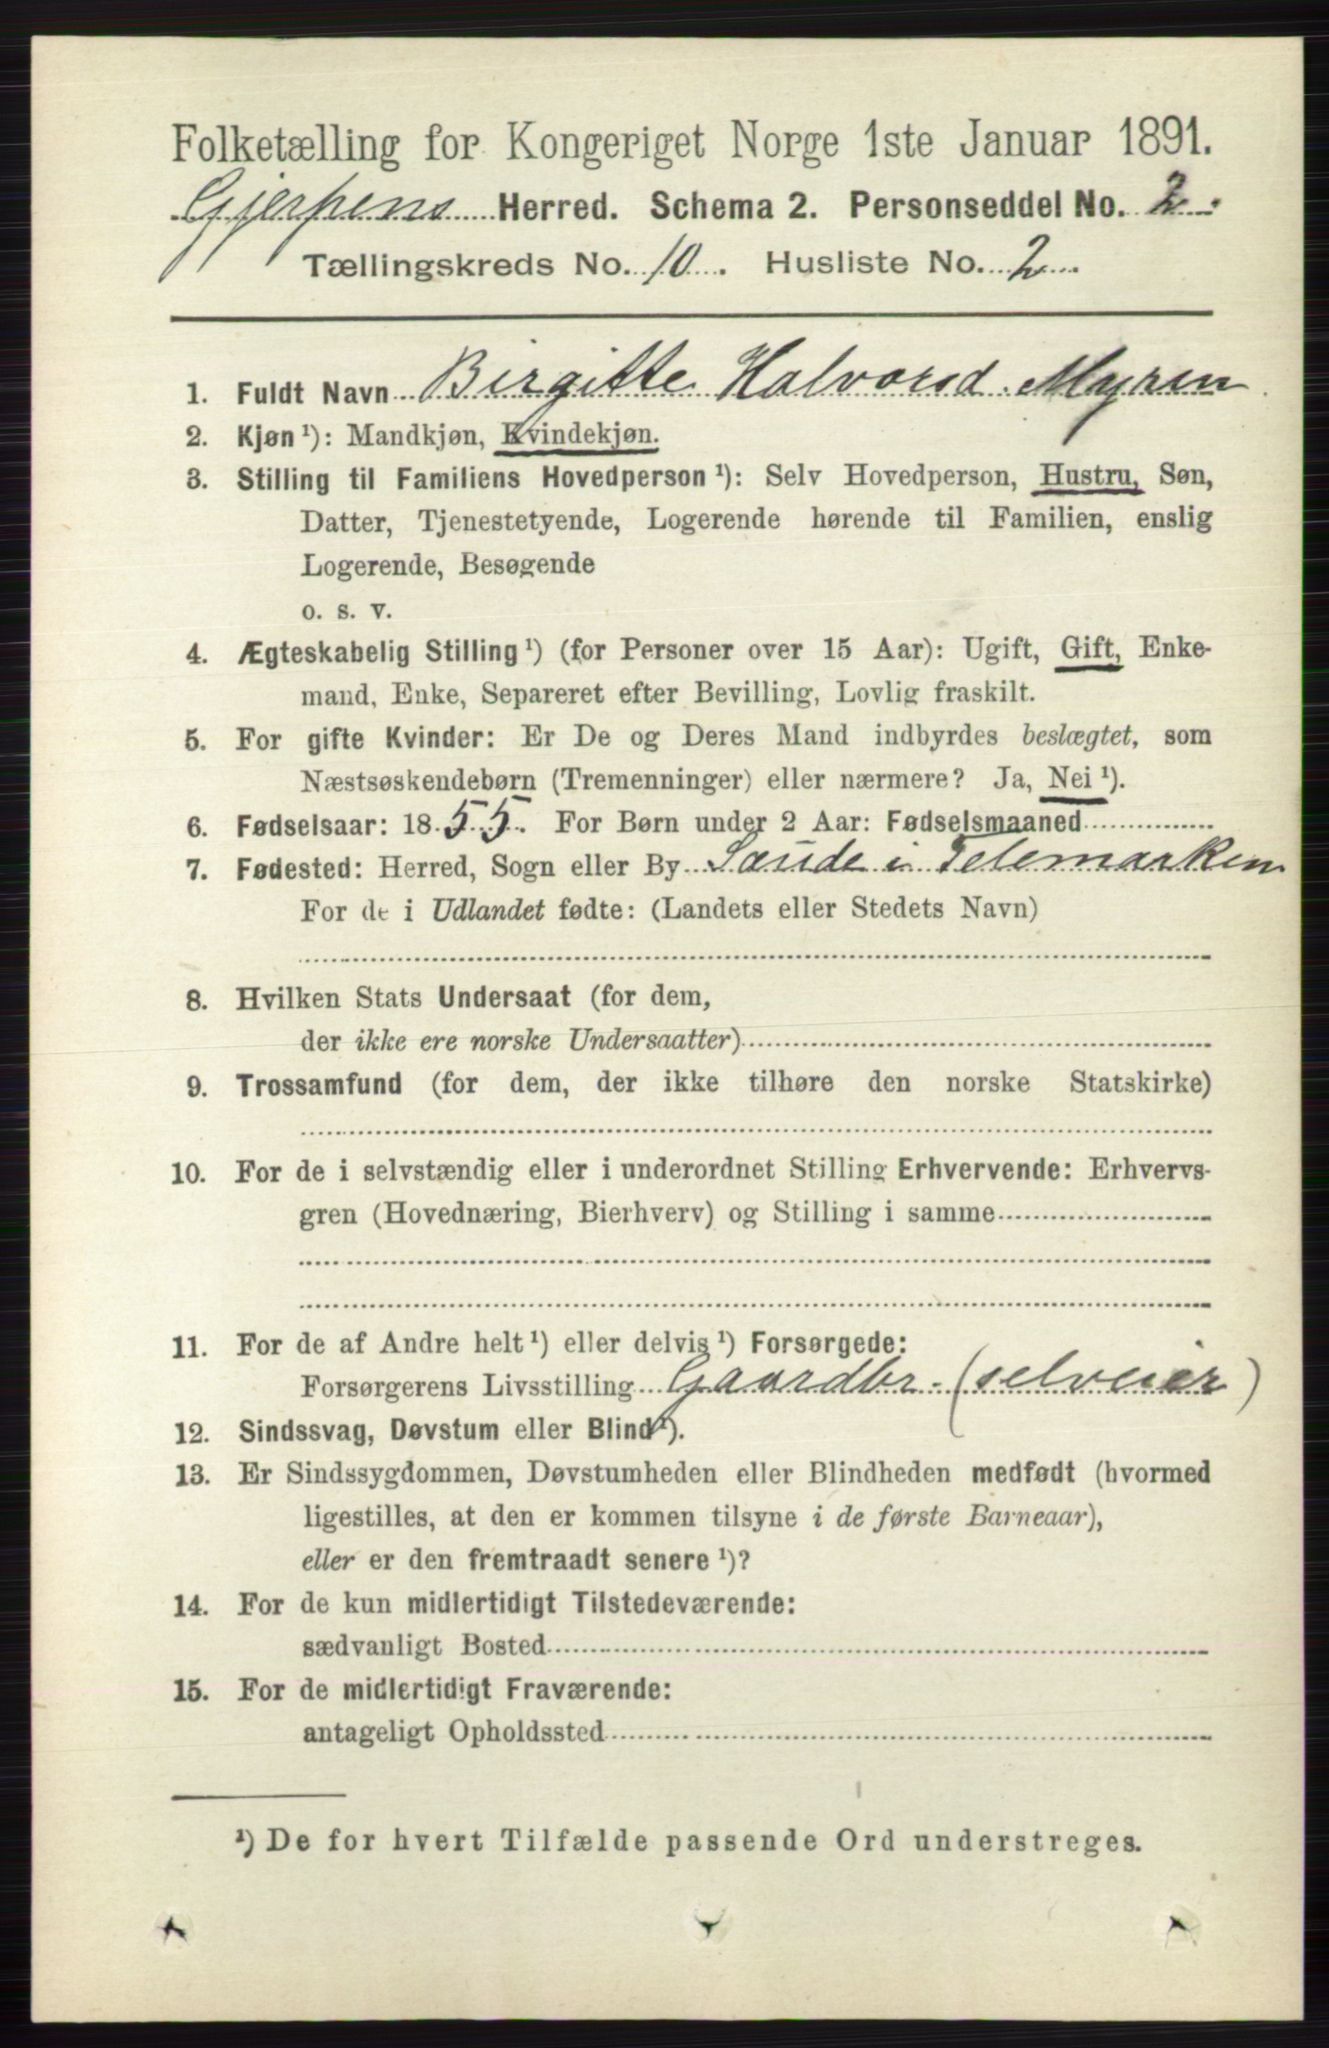 Folketælling for Kongeriget Norge 1ste Januar 1891.
Gjerpens Herred. Schema 2. Personseddel No. 2.
Tællingskreds No. 10. Husliste No. 2
1. Fuldt Navn Birgitte Halvorsd. Myren
2. Kjøn ¹): Mandkjøn, Kvindekjøn.
3. Stilling til Familiens Hovedperson ¹): Selv Hovedperson, Hustru, Søn,
Datter, Tjenestetyende, Logerende hørende til Familien, enslig
Logerende, Besøgende
o. s. v.
4. Ægteskabelig Stilling ¹) (for Personer over 15 Aar): Ugift, Gift, Enke-
mand, Enke, Separeret efter Bevilling, Lovlig fraskilt.
5. For gifte Kvinder: Er De og Deres Mand indbyrdes beslægtet, som
Næstsøskendebørn (Tremenninger) eller nærmere? Ja, Nei ¹).
6. Fødselsaar: 1855. For Børn under 2 Aar: Fødselsmaaned
7. Fødested: Herred, Sogn eller By Saude i Telemarken
For de i Udlandet fødte: (Landets eller Stedets Navn)
8. Hvilken Stats Undersaat (for dem,
der ikke ere norske Undersaatter)
9. Trossamfund (for dem, der ikke tilhøre den norske Statskirke)
10. For de i selvstændig eller i underordnet Stilling Erhvervende: Erhvervs-
gren (Hovednæring, Bierhverv) og Stilling i samme
11. For de af Andre helt ¹) eller delvis ¹) Forsørgede:
Forsørgerens Livsstilling Gaardbr. (selveier)
12. Sindssvag, Døvstum eller Blind ¹).
13. Er Sindssygdommen, Døvstumheden eller Blindheden medfødt (hvormed
ligestilles, at den er kommen tilsyne i de første Barneaar),
eller er den fremtraadt senere ¹)?
14. For de kun midlertidigt Tilstedeværende:
sædvanligt Bosted
15. For de midlertidigt Fraværende:
antageligt Opholdssted
¹) De for hvert Tilfælde passende Ord understreges.